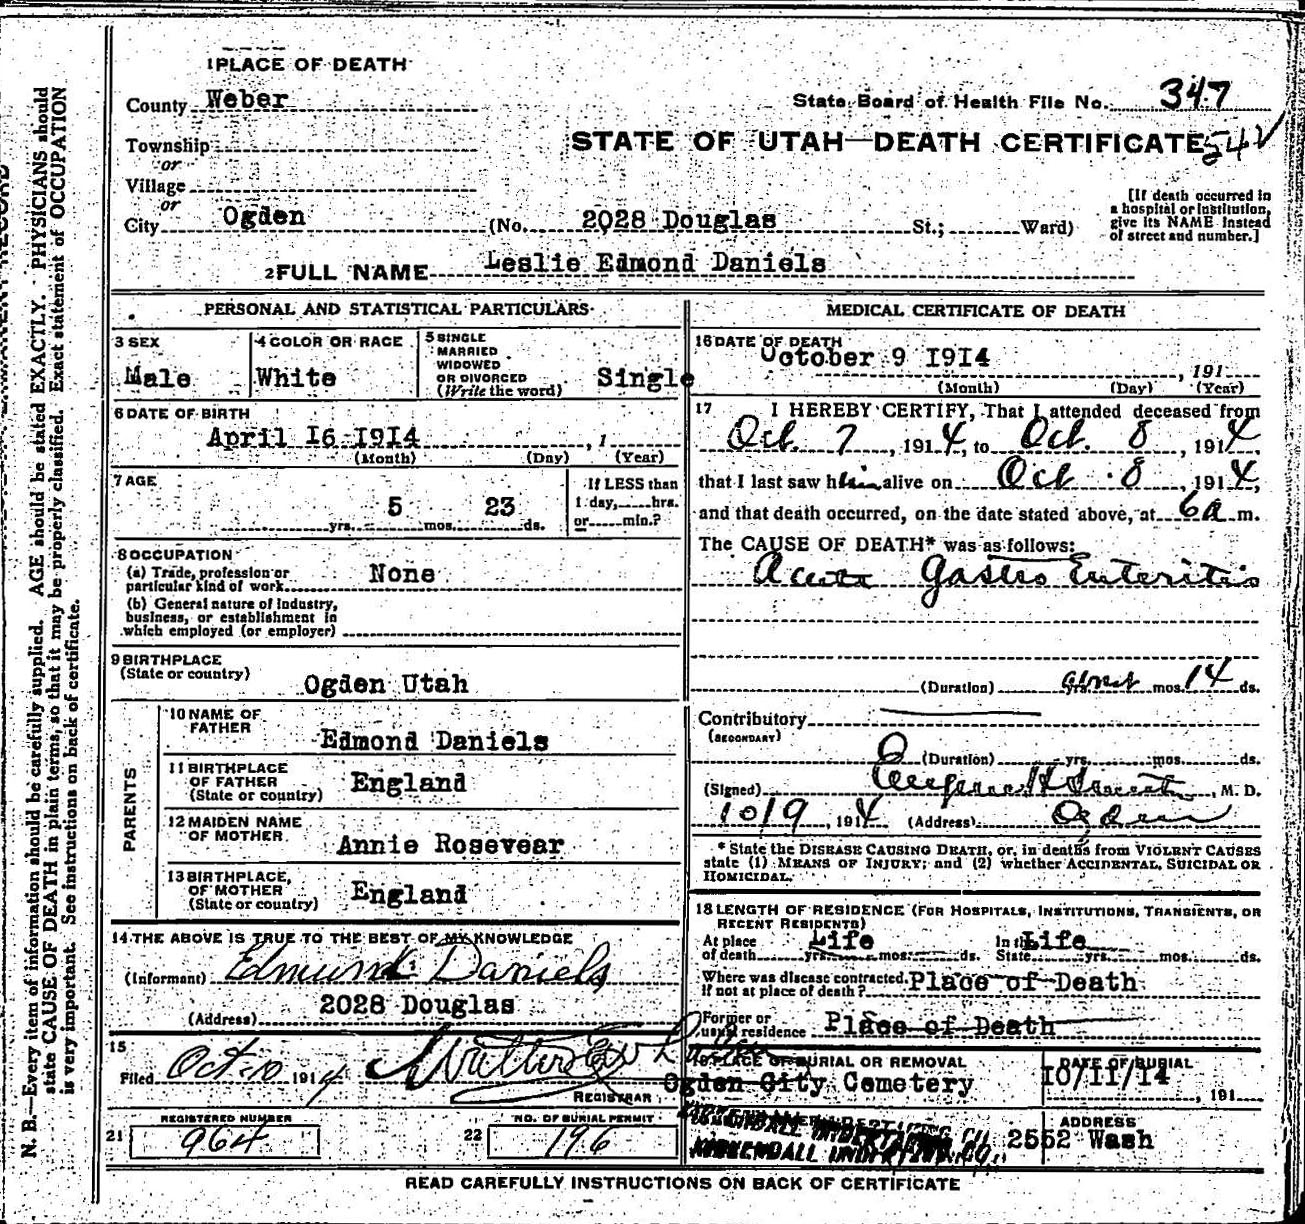 1 PLACE OF DEATH
County Weber
State Board of Health File No. 347
Township
STATE OF UTAH—DEATH CERTIFICATE
or
Village
or
City Ogden (No. 2028 Douglas St.; Ward)
[If death occurred in
a hospital or institution,
give its NAME instead
of street and number.]
2 FULL NAME Leslie Edmond Daniels
PERSONAL AND STATISTICAL PARTICULARS
3 SEX
Male
4 COLOR OR RACE
White
5 SINGLE
MARRIED
WIDOWED
OR DIVORCED
(Write the word) Single
6 DATE OF BIRTH
April 16 1914 , 1
(Month) (Day) (Year)
7 AGE
5 23
yrs. mos. ds.
If LESS than
1 day, hrs.
or min.?
8 OCCUPATION
(a) Trade, profession or
particular kind of work None
(b) General nature of industry,
business, or establishment in
which employed (or employer)
9 BIRTHPLACE
(State or country) Ogden Utah
PARENTS
10 NAME OF
FATHER Edmond Daniels
11 BIRTHPLACE
OF FATHER
(State or country) England
12 MAIDEN NAME
OF MOTHER Annie Rosevear
13 BIRTHPLACE,
OF MOTHER
(State or country) England
14 THE ABOVE IS TRUE TO THE BEST OF MY KNOWLEDGE
(Informant) Edmund Daniels
2028 Douglas
(Address)
15
Filed Oct-10 1914
REGISTRAR
REGISTERED NUMBER
21 964
NO. OF BURIAL PERMIT
22 196
MEDICAL CERTIFICATE OF DEATH
16 DATE OF DEATH
October 9 1914 , 191
(Month) (Day) (Year)
17 I HEREBY CERTIFY, That I attended deceased from
Oct. 7 , 1914, to Oct. 8 , 1914
that I last saw him alive on Oct 8 , 1914,
and that death occurred, on the date stated above, at 6a m.
The CAUSE OF DEATH* was as follows:
Acute Gastro Enteritis
(Duration) yrs. mos. 14 ds.
Contributory
(SECONDARY)
(Duration) yrs. mos. ds.
(Signed) , M. D.
10/9 , 1914 (Address) Ogden
* State the DISEASE CAUSING DEATH, or, in deaths from VIOLENT CAUSES
state (1) MEANS OF INJURY; and (2) whether ACCIDENTAL, SUICIDAL OR
HOMICIDAL.
18 LENGTH OF RESIDENCE (FOR HOSPITALS, INSTITUTIONS, TRANSIENTS, OR
RECENT RESIDENTS)
At place Life In the Life
of death yrs. mos. ds. State yrs. mos. ds.
Where was disease contracted,
if not at place of death? Place of Death
Former or
usual residence Place of Death
19 PLACE OF BURIAL OR REMOVAL
Ogden City Cemetery
DATE OF BURIAL
10/11/14 , 191
ADDRESS
2552 Wash
READ CAREFULLY INSTRUCTIONS ON BACK OF CERTIFICATE
N. B.—Every item of information should be carefully supplied. AGE should be stated EXACTLY. PHYSICIANS should
state CAUSE OF DEATH in plain terms, so that it may be properly classified. Exact statement of OCCUPATION
is very important. See instructions on back of certificate.